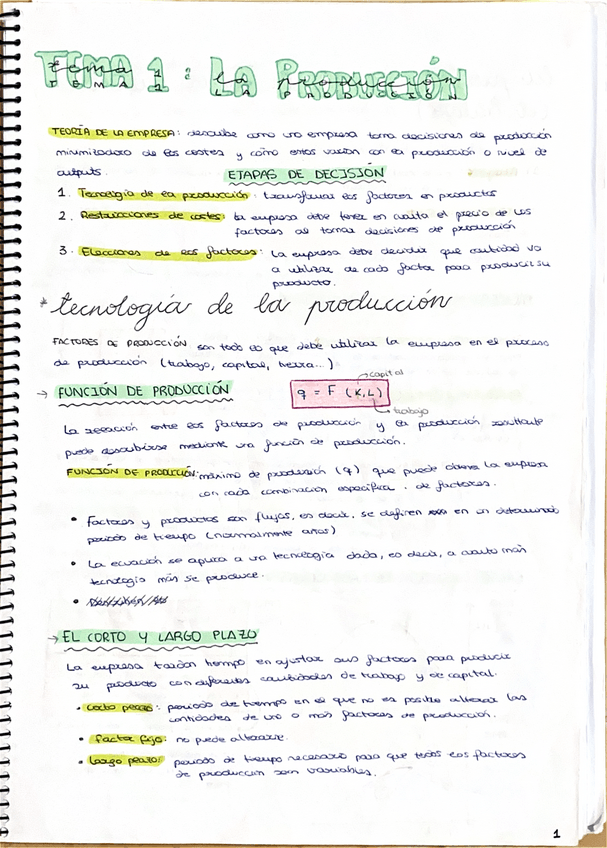 TEMA 1 : LA PRODUCCIÓN
TEORÍA DE LA EMPRESA: describe como una empresa toma decisiones de producción
minimizadora de los costes y cómo estos varían con la producción o nivel de
outputs.
ETAPAS DE DECISIÓN
1. Tecnología de la producción: transformar los factores en productos
2. Restricciones de costes: la empresa debe tener en cuenta el precio de los
factores al tomar decisiones de producción
3. Elecciones de los factores: la empresa debe decidir que cantidad va
a utilizar de cada factor para producir su
producto.
* tecnología de la producción
FACTORES DE PRODUCCIÓN son todo lo que debe utilizar la empresa en el proceso
de producción (trabajo, capital, tierra...)
→ capital
→ FUNCIÓN DE PRODUCCIÓN q = F (K,L)
→ trabajo
La relación entre los factores de producción y la producción resultante
puede describirse mediante una función de producción.
FUNCIÓN DE PRODUCCIÓN: máximo de producción (q) que puede obtener la empresa
con cada combinación específica de factores.
• Factores y productos son flujos, es decir, se definen en un determinado
periodo de tiempo (normalmente años)
• La ecuación se aplica a una tecnología dada, es decir, a cuanto más
tecnología más se produce.
→ EL CORTO Y LARGO PLAZO
La empresa tardan tiempo en ajustar sus factores para producir
su producto con diferentes cantidades de trabajo y de capital.
• corto plazo: periodo de tiempo en el que no es posible alterar las
cantidades de uno o más factores de producción.
• factor fijo: no puede alterarse.
• largo plazo: periodo de tiempo necesario para que todos los factores
de producción sean variables.
1